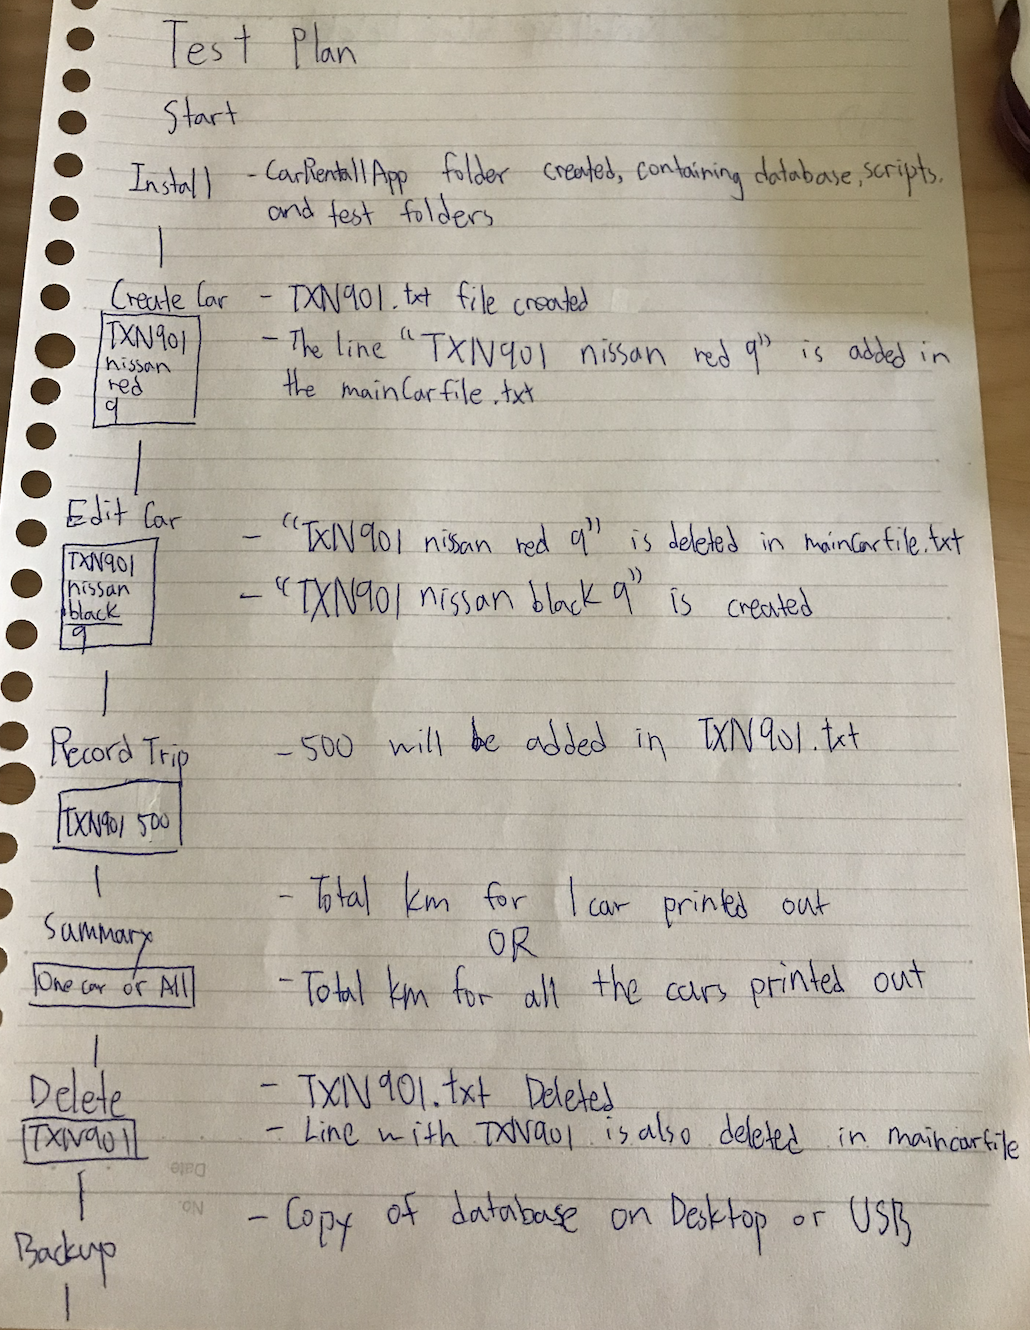 Test Plan
Start
Install - CarRentallApp folder created, containing database, scripts.
and test folders
Create Car - TXN901.txt file created
TXN901
nissan
red
9
- The line "TXN901 nissan red 9" is added in
the mainCarfile.txt
Edit Car
TXN901
nissan
black
9
- "TXN901 nissan red 9" is deleted in mainCarfile.txt
- "TXN901 nissan black 9" is created
Record Trip - 500 will be added in TXN901.txt
TXN901 500
Summary
One car or All
- Total km for 1 car printed out
OR
- Total km for all the cars printed out
Delete
TXN901
- TXN901.txt Deleted
- Line with TXN901 is also deleted in maincarfile
Date
No.
Backup - Copy of database on Desktop or USB